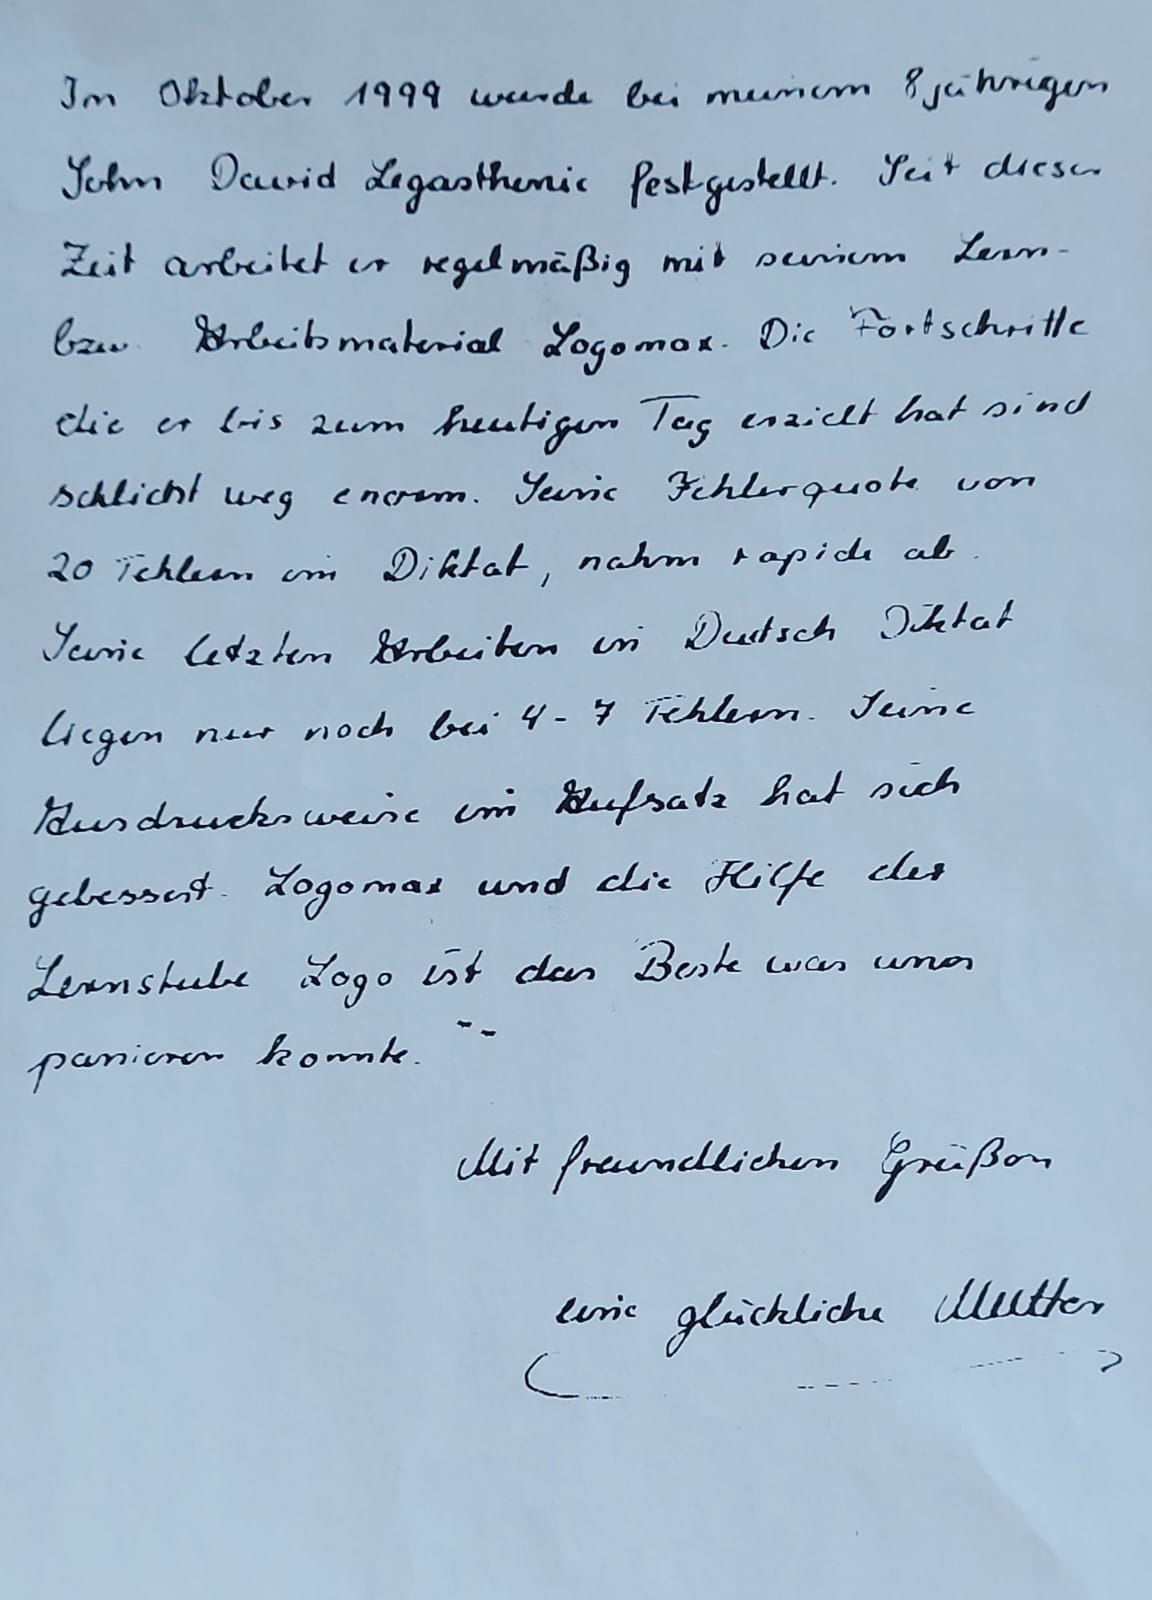 Im Oktober 1999 wurde bei meinem 8 jährigen
Sohn David Legasthenie festgestellt. Seit dieser
Zeit arbeitet er regelmäßig mit seinem Lern-
bzw. Arbeitsmaterial Logomax. Die Fortschritte
die er bis zum heutigen Tag erzielt hat sind
schlicht weg enorm. Seine Fehlerquote von
20 Fehlern im Diktat, nahm rapide ab.
Seine letzten Arbeiten in Deutsch Diktat
liegen nur noch bei 4-7 Fehlern. Seine
Ausdrucksweise im Aufsatz hat sich
gebessert. Logomax und die Hilfe der
Lernstube Logo ist das Beste was uns
passieren konnte.
Mit freundlichen Grüßen
eine glückliche Mutter